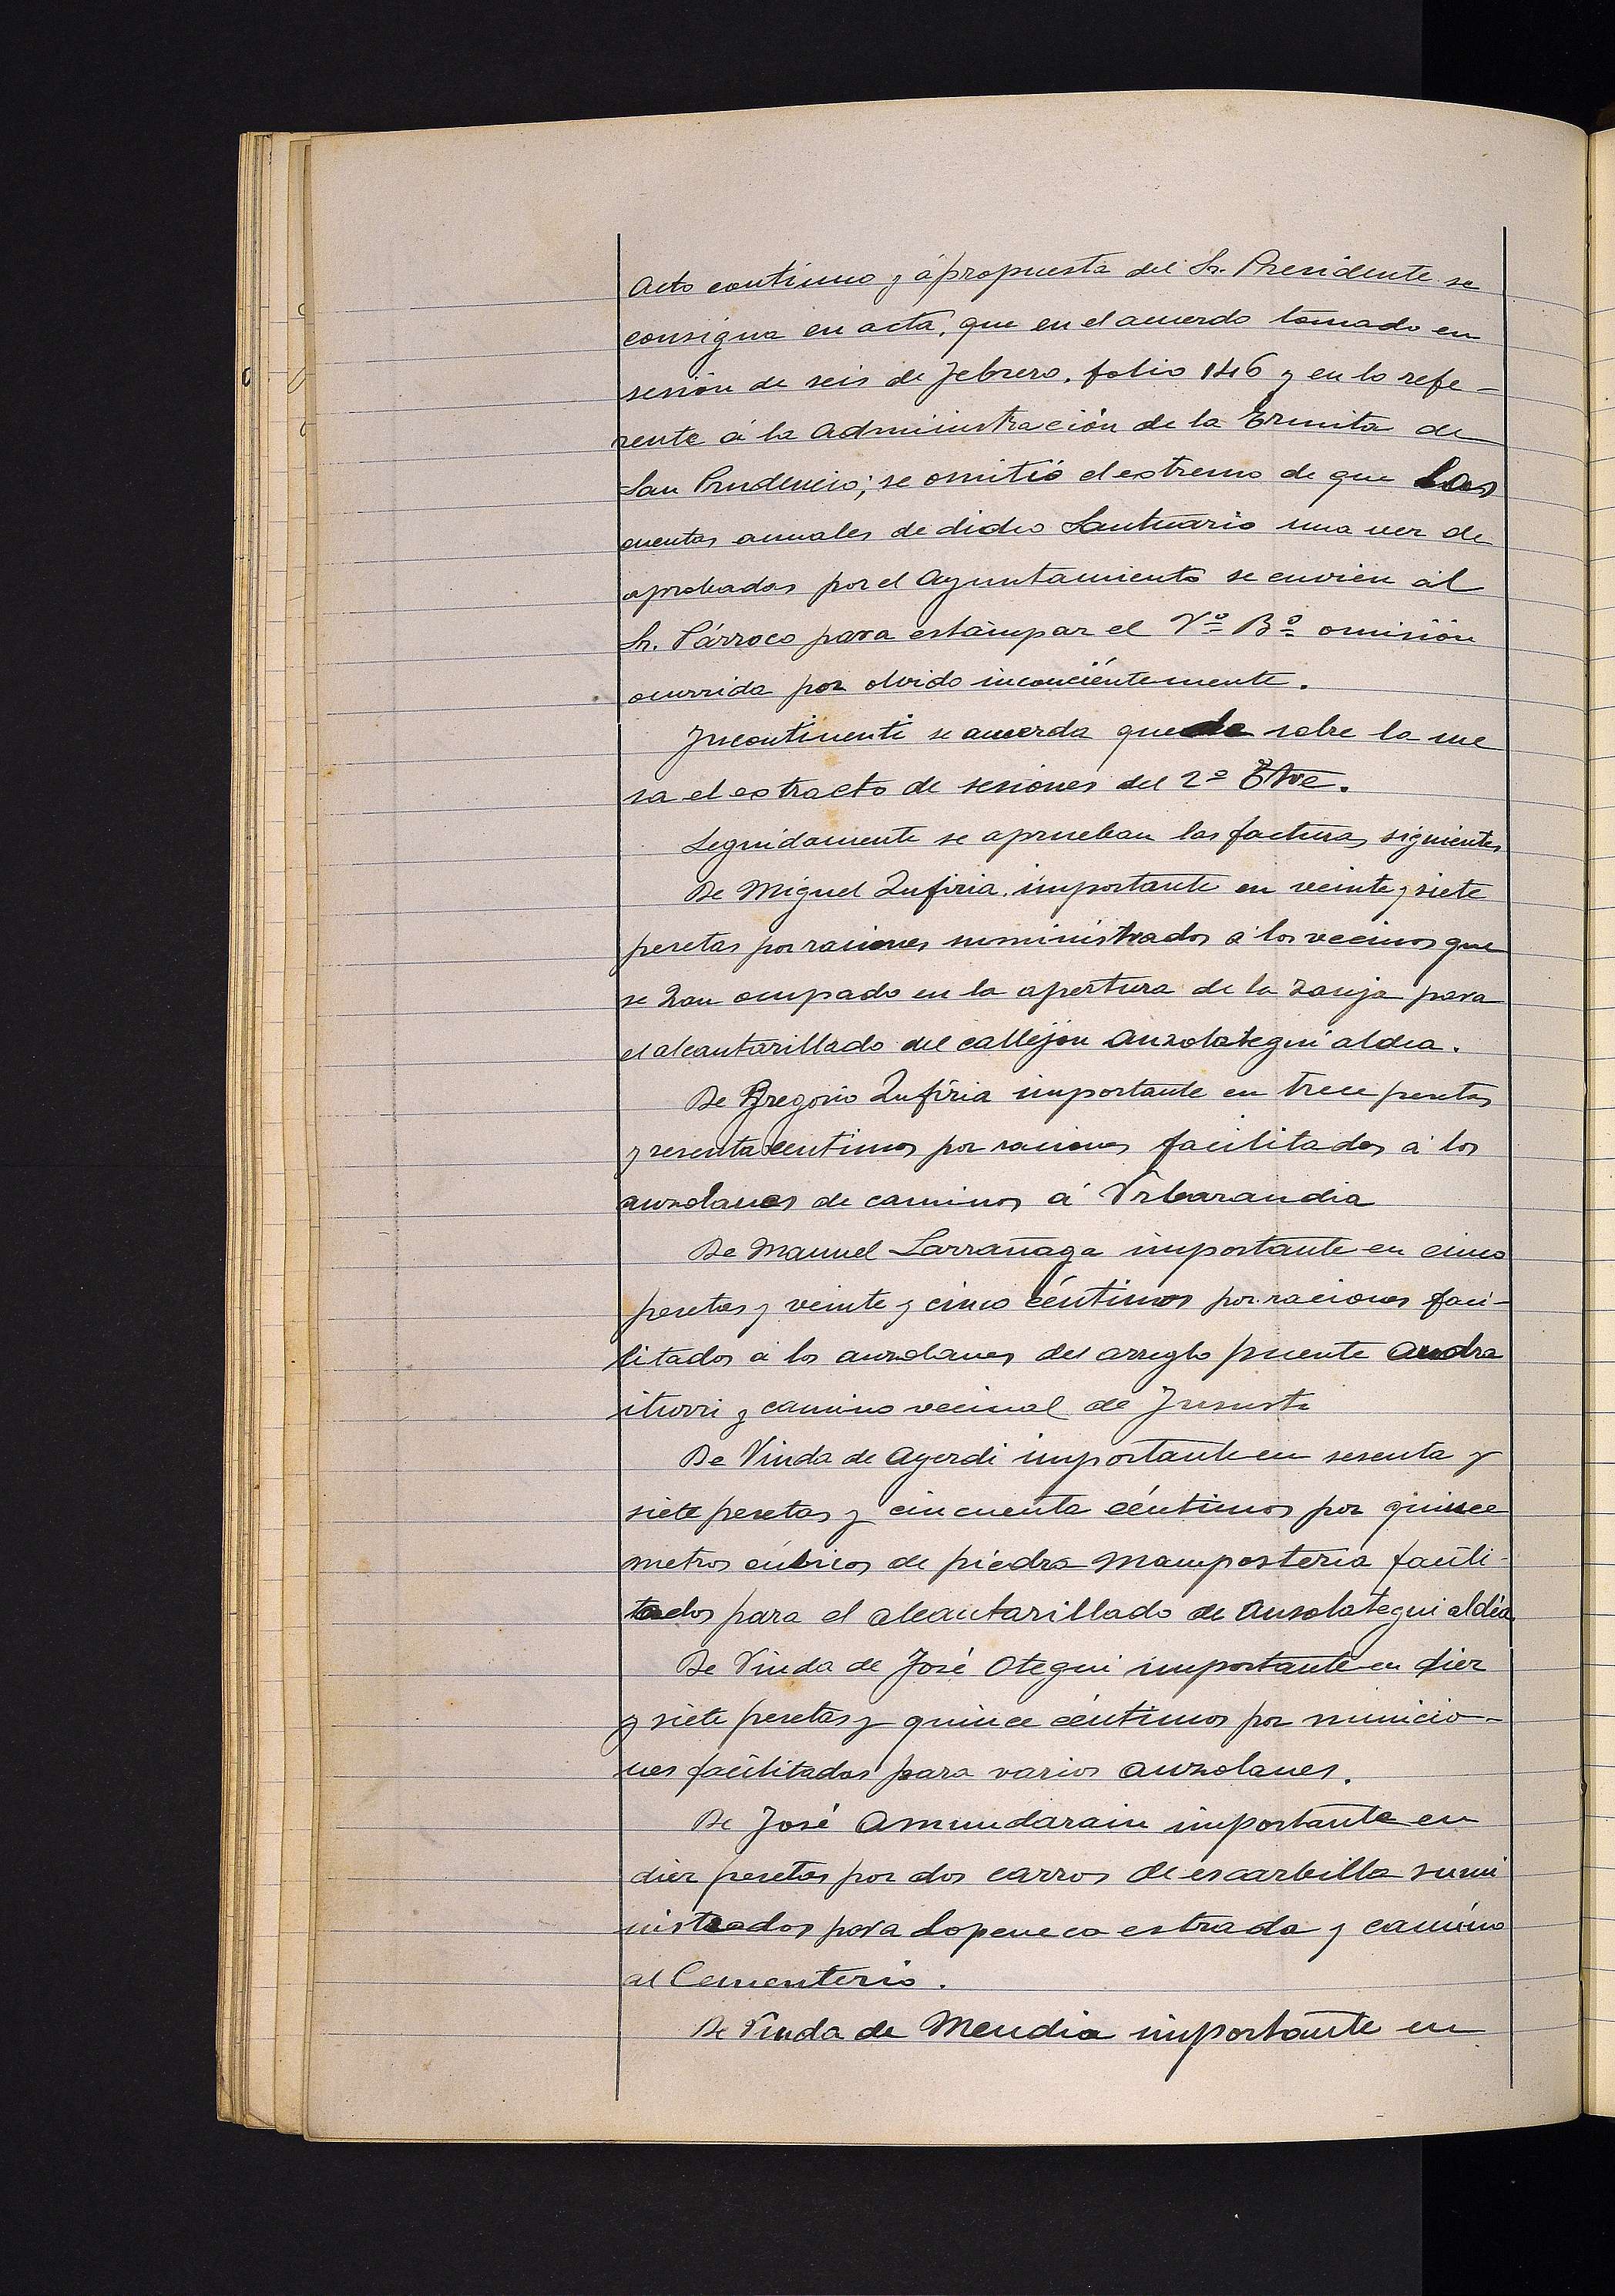 Acto continuo y á propuesta del Sr. Presidente se
consigna en acta, que en el acuerdo tomado en
sesión de seis de Febrero, folio 146 y en lo refe-
rente á la Administración de la Ermita de
San Prudencio; se omitió el estremo de que las
cuentas anuales de dicho Santuario una vez de
aprobadas por el Ayuntamiento se envien al
Sr. Párroco para estámpar el Vº Bº omisión
ocurrida por olvido inconciéntemente.
Incontinenti se acuerda quede sobre la me
sa el estracto de sesiones del 2º Etre.
Seguidamente se aprueban las facturas siguientes
De Miguel Zufiria, importante en veinte y siete
pesetas por raciones suministrados á los vecinos que
se han ocupado en la apertura de la zanja para
el alcantarillado del callejón Auzolategui aldea.
De Gregorio Zufiria importante en trece pesetas
y sesenta centimos por raciones facilitados á los
auzolanes de caminos á Urbarandia
De Manuel Larrañaga importante en cinco
pesetas y veinte y cinco céntimos por raciones faci-
litados á los auzolanes del arreglo puente Andra
iturri y camino vecinal de Jusust
De Viuda de Ayerdi importante en sesenta y
siete pesetas y cincuenta céntimos por quince
metros cúbicos de piedra mampostería facili-
tados para el alcantarillado de Auzolategui aldéa
De Viuda de José Otegui importante en diez
y siete pesetas y quince céntimos por municio-
nes facilitados para varios auzolanes.
De José Amundarain importante en
diez pesetas por dos carros de escarbilla sumi
nistrados para Lopeneco estrada y camino
al Cementerio.
De Viuda de Mendia importante en